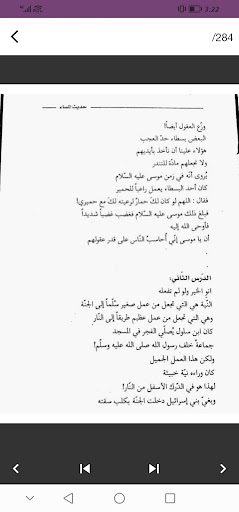 7:22
/284
حديث المساء
وزّع العقول أيضاً!
البعض بسطاء حدّ العجب
هؤلاء علينا أن نأخذ بأيديهم
ولا نجعلهم مادّة للتندر
يُروى أنّه في زمن موسى عليه السّلام
كان أحد البسطاء يعمل راعياً للحمير
فقال : اللهم لو كان لكَ حمارٌ لرعيته لكَ مع حميري!
فبلغ ذلك موسى عليه السّلام فغضب غضباً شديداً
فأوحى الله إليه
أن يا موسى إنّي أُحاسِبُ النّاس على قدر عقولهم
.
الدّرس الثّاني:
انوِ الخير ولو لم تفعله
النيّة هي التي تجعل من عمل صغير سلّماً إلى الجنّة
وهي التي تجعل من عمل عظيم طريقاً إلى النّار
كان ابن سلول يُصلّي الفجر في المسجد
جماعةً خلف رسول الله صلى الله عليه وسلّم!
ولكن هذا العمل الجميل
كان وراءه نيّة خبيثة
لهذا هو في الدّرك الأسفل من النّار!
وبغيّ بني إسرائيل دخلت الجنّة بكلب سقته